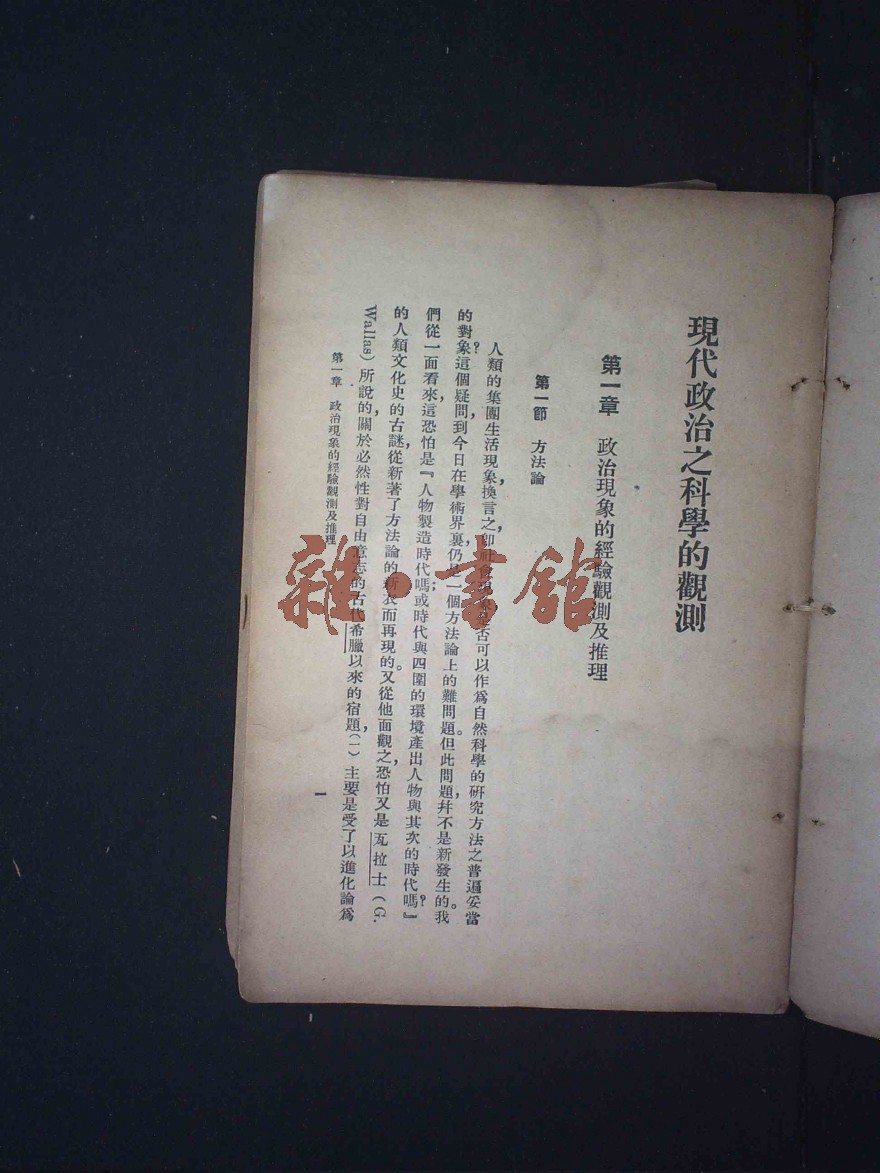 現代政治之科學的觀測
第一章 政治現象的經驗觀測及推理
第一節 方法論
人類的集團生活現象,換言之,即社會現象是否可以作爲自然科學的研究方法之普遍妥當
的對象?這個疑問,到今日在學術界裏,仍是一個方法論上的難問題。但此問題,幷不是新發生的。我
們從一面看來,這恐怕是『人物製造時代嗎;或時代與四圍的環境產出人物與其次的時代嗎?』
的人類文化史的古謎,從新著了方法論的新衣而再現的。又從他面觀之,恐怕又是瓦拉士(G.
Wallas)所說的,關於必然性對自由意志的古代希臘以來的宿題,(一)主要是受了以進化論爲
第一章 政治現象的經驗觀測及推理
一
雜·書館